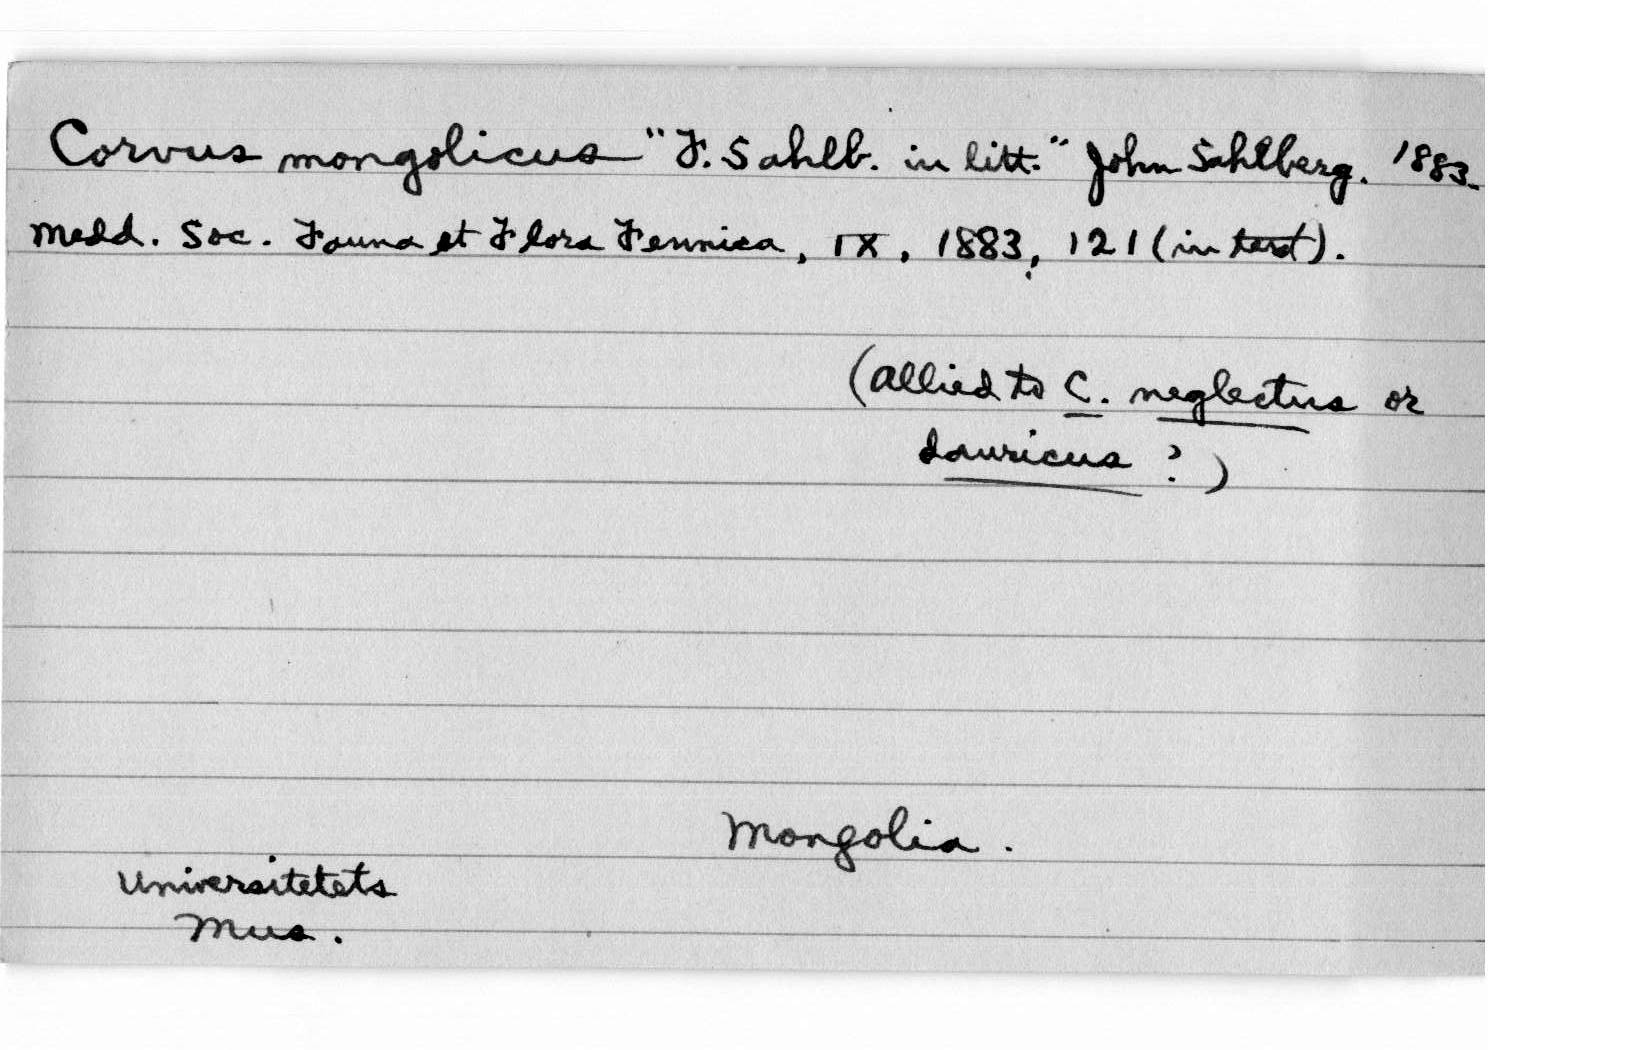 Corvus mongolicus "F. Sahlb. in litt." John Sahlberg. 1883.
Medd. Soc. Fauna et Flora Fennica, IX, 1883, 121 (in text).
(allied to C. neglectus or
dauricus ?)
Mongolia.
Universitetets
Mus.